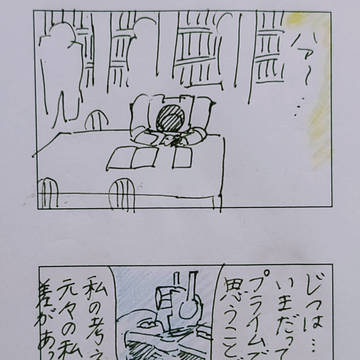 ハァ〜…
じつは…
いまだっ
プライム
思うこと
私の考え
元々の私
差があっ